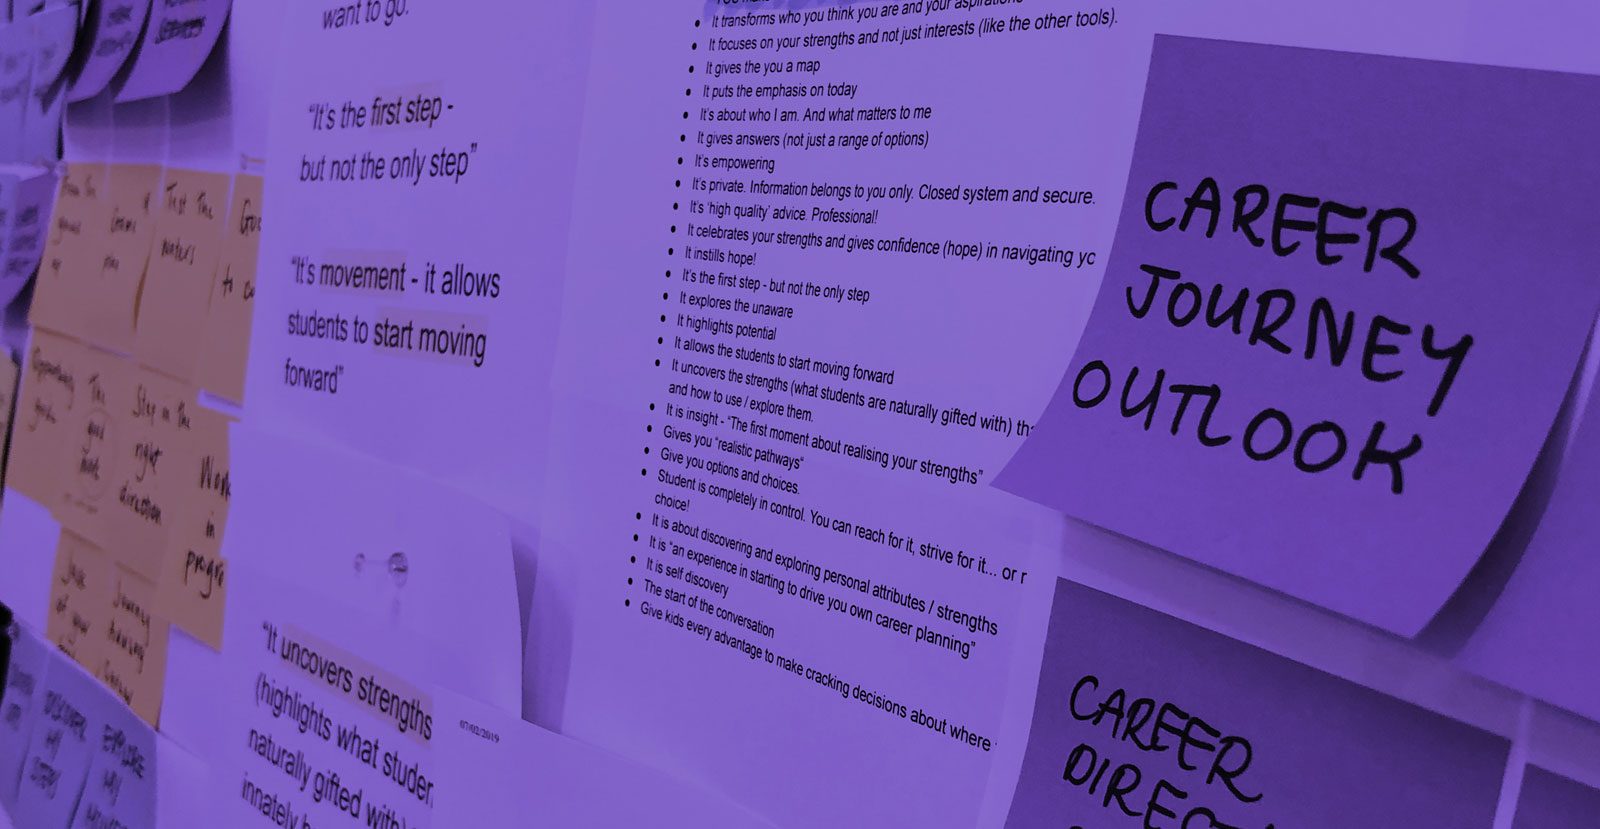 want to go.
"It's the first step -
but not the only step"
"It's movement - it allows
students to start moving
forward"
"It uncovers strengths
(highlights what studen
naturally gifted with)
innately
07/02/2019
It transforms who you think you are and your aspirations
It focuses on your strengths and not just interests (like the other tools).
It gives the you a map
It puts the emphasis on today
It's about who I am. And what matters to me
It gives answers (not just a range of options)
It's empowering
It's private. Information belongs to you only. Closed system and secure.
It's 'high quality' advice. Professional!
It celebrates your strengths and gives confidence (hope) in navigating yo
It instills hope!
It's the first step - but not the only step
It explores the unaware
It highlights potential
It allows the students to start moving forward
It uncovers the strengths (what students are naturally gifted with) tha
and how to use / explore them.
It is insight - "The first moment about realising your strengths"
Gives you "realistic pathways"
Give you options and choices.
Student is completely in control. You can reach for it, strive for it... or r
choice!
It is about discovering and exploring personal attributes / strengths
It is "an experience in starting to drive you own career planning"
It is self discovery
The start of the conversation
Give kids every advantage to make cracking decisions about where
CAREER
JOURNEY
OUTLOOK
CAREER
DIRECT
Test the
waters
Step in the
right
direction
Work
in
progre